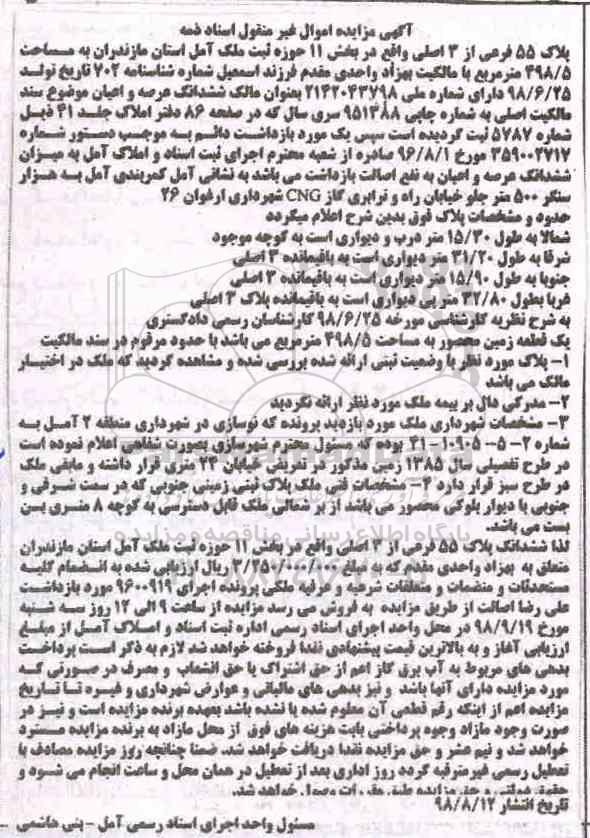 آگهی مزایده اموال غیر منقول اسناد ذمه
پلاک ۵۵ فرعی از ۳ اصلی واقع در بخش ۱۱ حوزه ثبت ملک آمل استان مازندران به مساحت
۴۹۸/۵ مترمربع با مالکیت بهزاد واحدی مقدم فرزند اسمعیل شماره شناسنامه ۷۰۲ تاریخ تولد
۹۸/۶/۲۵ دارای شماره ملی ۲۱۴۲۰۴۳۷۹۸ بعنوان مالک ششدانگ عرصه و اعیان موضوع سند
مالکیت اصلی به شماره چاپی ۹۵۱۳۸۸ سری سال که در صفحه ۸۶ دفتر املاک جلد ۴۱ ذیل
شماره ۵۷۸۷ ثبت گردیده است سپس یک مورد بازداشت دائم به موجب دستور شماره
۳۵۹۰۰۲۷۱۷ مورخ ۹۶/۸/۱ صادره از شعبه محترم اجرای ثبت اسناد و املاک آمل به میزان
ششدانگ عرصه و اعیان به نفع اصالت بازداشت می باشد به نشانی آمل کمربندی آمل به هزار
سنگر ۵۰۰ متر جلو خیابان راه و ترابری گاز CNG شهرداری ارغوان ۲۶
حدود و مشخصات پلاک فوق بدین شرح اعلام میگردد
شمالا به طول ۱۵/۳۰ متر درب و دیواری است به کوچه موجود
شرقا به طول ۳۱/۲۰ متر دیواری است به باقیمانده ۳ اصلی
جنوبا به طول ۱۵/۹۰ متر دیواری است به باقیمانده ۳ اصلی
غربا بطول ۳۲/۸۰ متر پی دیواری است به باقیمانده پلاک ۳ اصلی
به شرح نظریه کارشناسی مورخه ۹۸/۶/۲۵ کارشناسان رسمی دادگستری
یک قطعه زمین محصور به مساحت ۴۹۸/۵ مترمربع می باشد با حدود مرقوم در سند مالکیت
۱- پلاک مورد نظر با وضعیت ثبتی ارائه شده بررسی شده و مشاهده گردید که ملک در اختیار
مالک می باشد
۲- مدرکی دال بر بیمه ملک مورد نظر ارائه نگردید
۳- مشخصات شهرداری ملک مورد بازدید پرونده که نوسازی در شهرداری منطقه ۲ آمل به
شماره ۲- ۵-- ۱۰۹۰۵- ۴۱ بوده که مسئول محترم شهرسازی بصورت شفاهی اعلام نموده است
در طرح تفصیلی سال ۱۳۸۵ زمین مذکور در تعریض خیابان ۲۴ متری قرار داشته و مابقی ملک
در طرح سبز قرار دارد ۴- مشخصات فنی ملک پلاک ثبتی زمینی جنوبی که در سمت شرقی و
جنوبی با دیوار بلوکی محصور می باشد از بر شمالی ملک قابل دسترسی به کوچه ۸ متری بن
بست می باشد.
لذا ششدانگ پلاک ۵۵ فرعی از ۳ اصلی واقع در بخش ۱۱ حوزه ثبت ملک آمل استان مازندران
متعلق به بهزاد واحدی مقدم که به مبلغ ۳/۲۵۰/۰۰۰/۰۰۰ ریال ارزیابی شده به انضمام کلیه
مستحدثات و منضمات و متعلقات شرعیه و عرفیه ملکی پرونده اجرای ۹۶۰۰۹۱۹ مورد بازداشت
علی رضا اصالت از طریق مزایده به فروش می رسد مزایده از ساعت ۹ الی ۱۲ روز سه شنبه
مورخ ۹۸/۹/۱۹ در محل واحد اجرای اسناد رسمی اداره ثبت اسناد و املاک آمل از مبلغ
ارزیابی آغاز و به بالاترین قیمت پیشنهادی نقدا فروخته خواهد شد لازم به ذکر است پرداخت
بدهی های مربوط به آب برق گاز اعم از حق اشتراک یا حق انشعاب و مصرف در صورتی که
مورد مزایده دارای آنها باشد و نیز بدهی های مالیاتی و عوارض شهرداری و غیره تا تاریخ
مزایده اعم از اینکه رقم قطعی آن معلوم شده یا نشده باشد بعهده برنده مزایده است و نیز در
صورت وجود مازاد وجوه پرداختی بابت هزینه های فوق از محل مازاد به برنده مزایده مسترد
خواهد شد و نیم عشر و حق مزایده نقدا دریافت خواهد شد. ضمنا چنانچه روز مزایده مصادف با
تعطیل رسمی غیرمترقبه گردد روز اداری بعد از تعطیل در همان محل و ساعت انجام می شود و
حقوق دولتی و حق مزایده طبق مقررات وصول خواهد شد.
تاریخ انتشار ۹۸/۸/۱۲
مسئول واحد اجرای اسناد رسمی آمل -بنی هاشمی